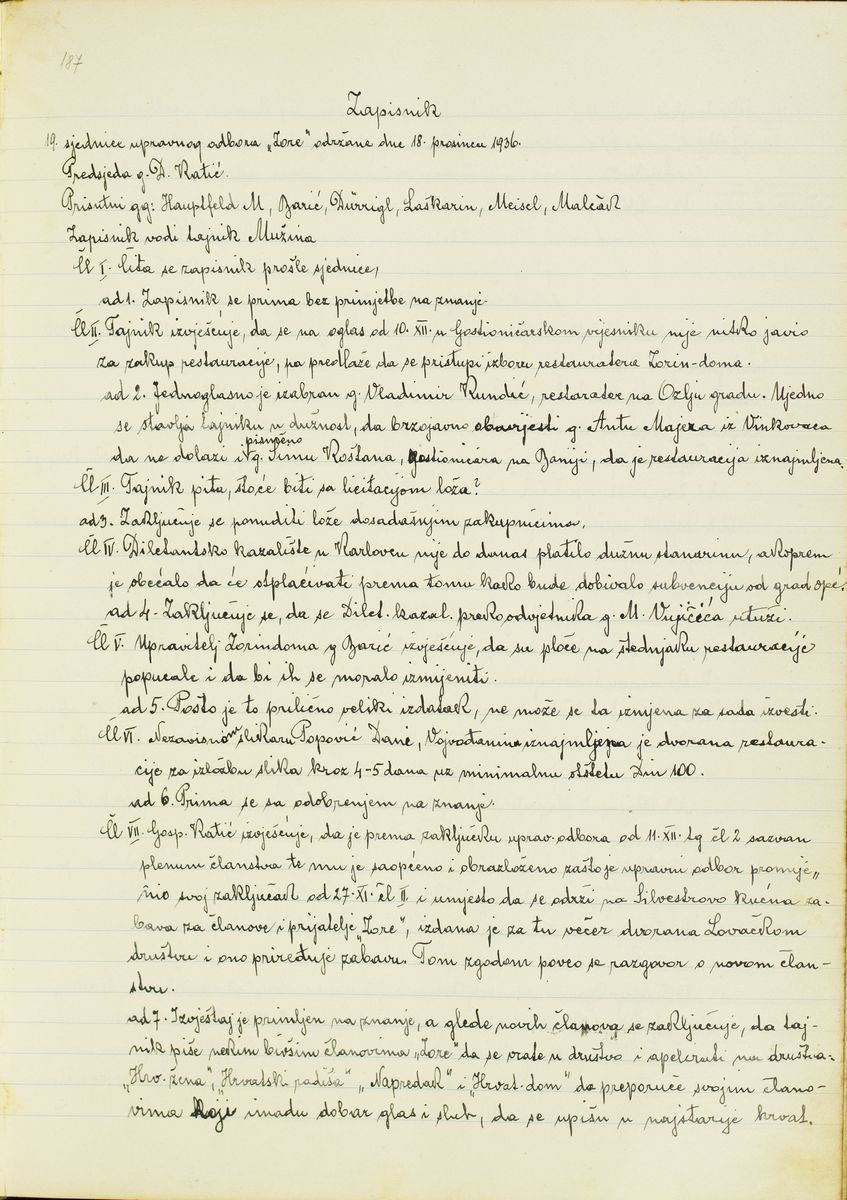 187
Zapisnik
19. sjednice upravnog odbora „Zore" održane dne 18. prosinca 1936.
Predsjeda g. D. Katić.
Prisutni gg: Hauptfeld M, Barić, Dürrigl, Laškarin, Meisel, Malčák
Zapisnik vodi tajnik Mužina
Čl I. Čita se zapisnik prošle sjednice,
ad 1. Zapisnik se prima bez primjetbe na znanje.
Čl II. Tajnik izvješćuje, da se na oglas od 10. XII. u Gostioničarskom vijesniku nije nitko javio
za zakup restauracije, pa predlaže da se pristupi izboru restauratera Zorin-doma.
ad 2. Jednoglasno je izabran g. Vladimir Kundić, restorater na Ozlju gradu. Ujedno
se stavlja tajniku u dužnost, da brzojavno obavjesti g. Antu Majera iz Vinkovaca
da ne dolazi i pismeno g. Simu Koštana, gostioničara na Baniji, da je restauracija iznajmljena.
Čl III. Tajnik pita, što će biti sa licitacijom loža?
ad 3. Zaključuje se ponuditi lože dosadašnjim zakupnicima.
Čl IV. Diletantsko kazalište u Karlovcu nije do danas platilo dužnu stanarinu, akoprem
je obećalo da će otplaćivati prema tomu kako bude dobivalo subvenciju od grad opć.
ad 4. Zaključuje se, da se Dilet. kazal. preko odvjetnika g. M. Vujičića utuži.
Čl V. Upravitelj Zorindoma g Barić izvješćuje, da su ploče na štednjaku restauracije
popucale i da bi ih se moralo izmijeniti.
ad 5. Pošto je to prilično veliki izdatak, ne može se ta izmjena za sada izvesti.
Čl VI. Nezavisnom slikaru Popović Dane, Vojvođaninu iznajmljena je dvorana restaura-
cije za izložbu slika kroz 4-5 dana uz minimalnu otštetu Din 100.
ad 6. Prima se sa odobrenjem na znanje.
Čl VII. Gosp. Katić izvješćuje, da je prema zaključku uprav. odbora od 11. XII. tg čl 2 sazvan
plenum članstva te mu je saopćeno i obrazloženo zašto je upravni odbor promije„
nio svoj zaključak od 27. XI. čl II i umjesto da se održi na Silvestrovo kućna za-
bava za članove i prijatelje „Zore", izdana je za tu večer dvorana Lovačkom
društvu i ono priređuje zabavu. Tom zgodom poveo se razgovor o novom član-
stvu.
ad 7. Izvještaj je primljen na znanje, a glede novih članova se zaključuje, da taj-
nik piše nekim bivšim članovima „Zore" da se vrate u društvo i apelirati na društva=
„Hrv. žena", „Hrvatsk radiša" „Napredak" i „Hrvat. dom" da preporuče svojim člano-
vima koji imadu dobar glas i sluh, da se upišu u najstarije hrvat.